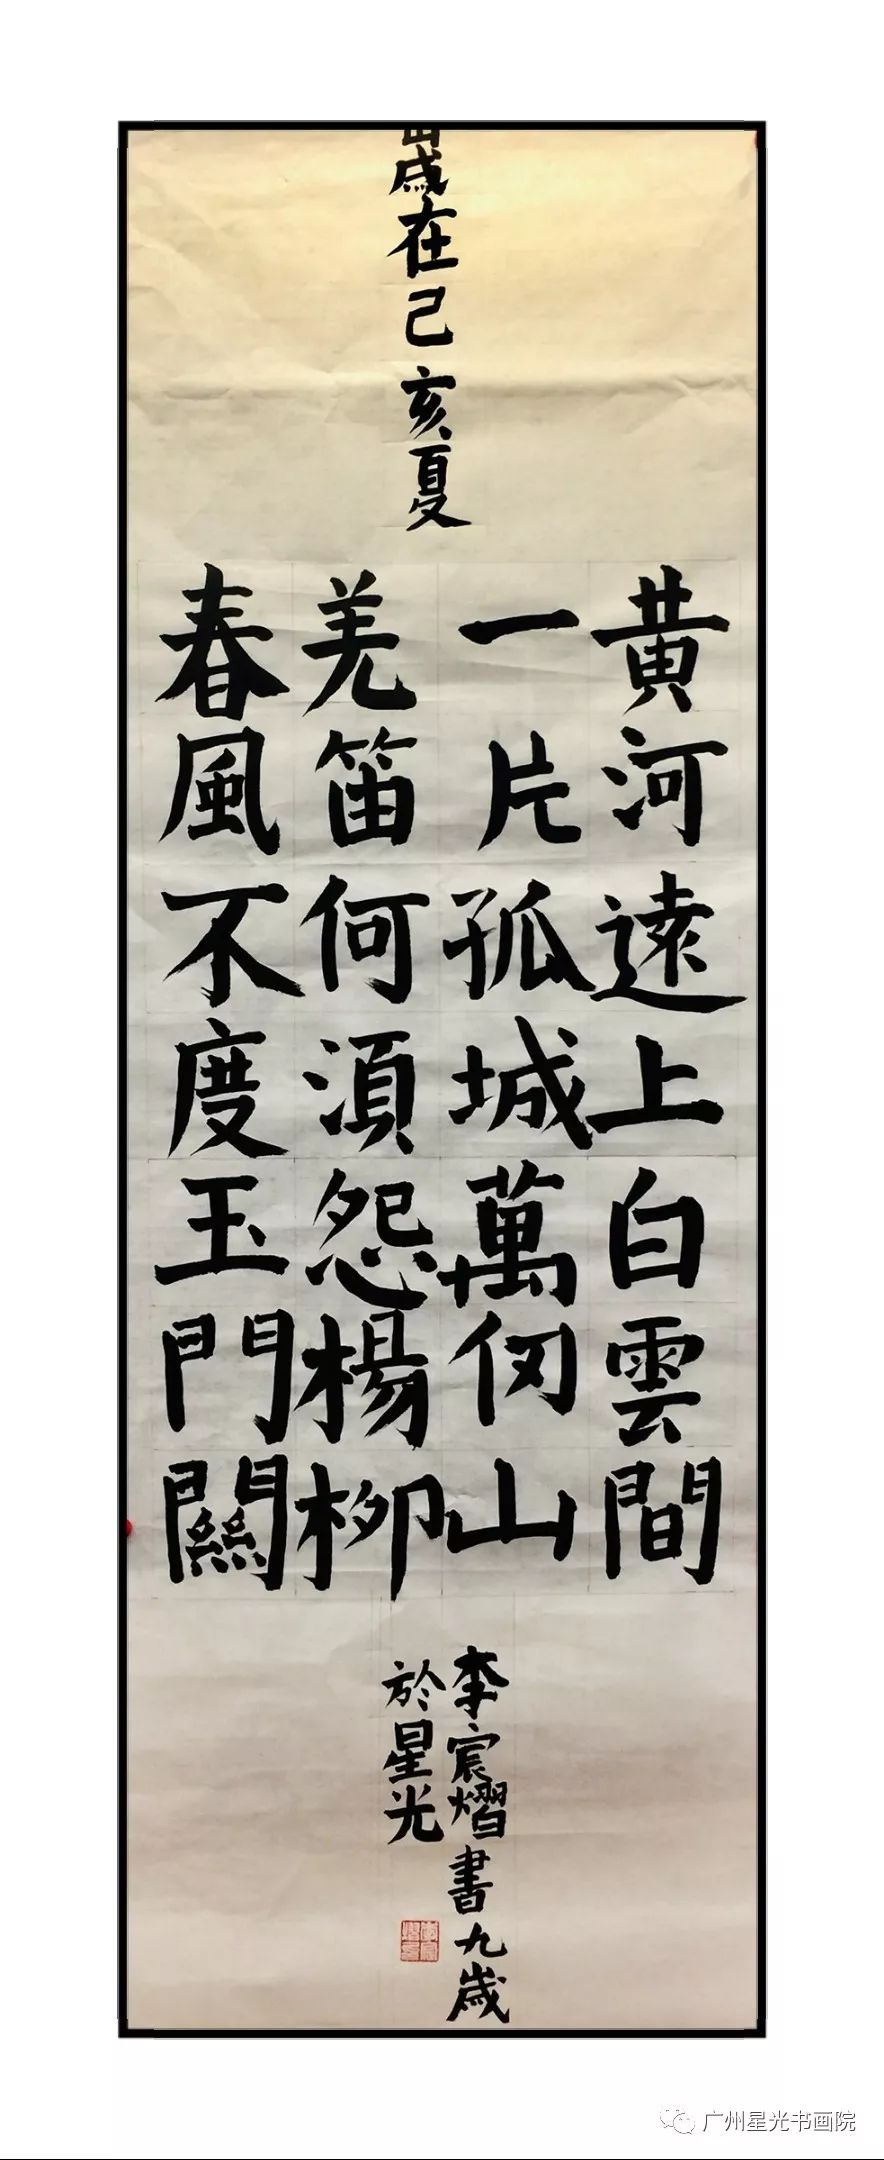 歲在己亥夏
黄河遠上白雲間
一片孤城萬仞山
羌笛何湏怨楊柳
春風不度玉門關
李宸熠書九歲
於星光
广州星光书画院